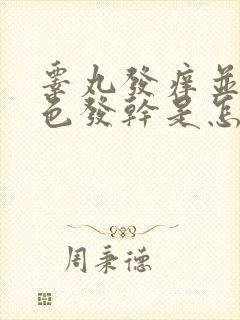 睾丸發痒並
色發幹是怎
周秉德